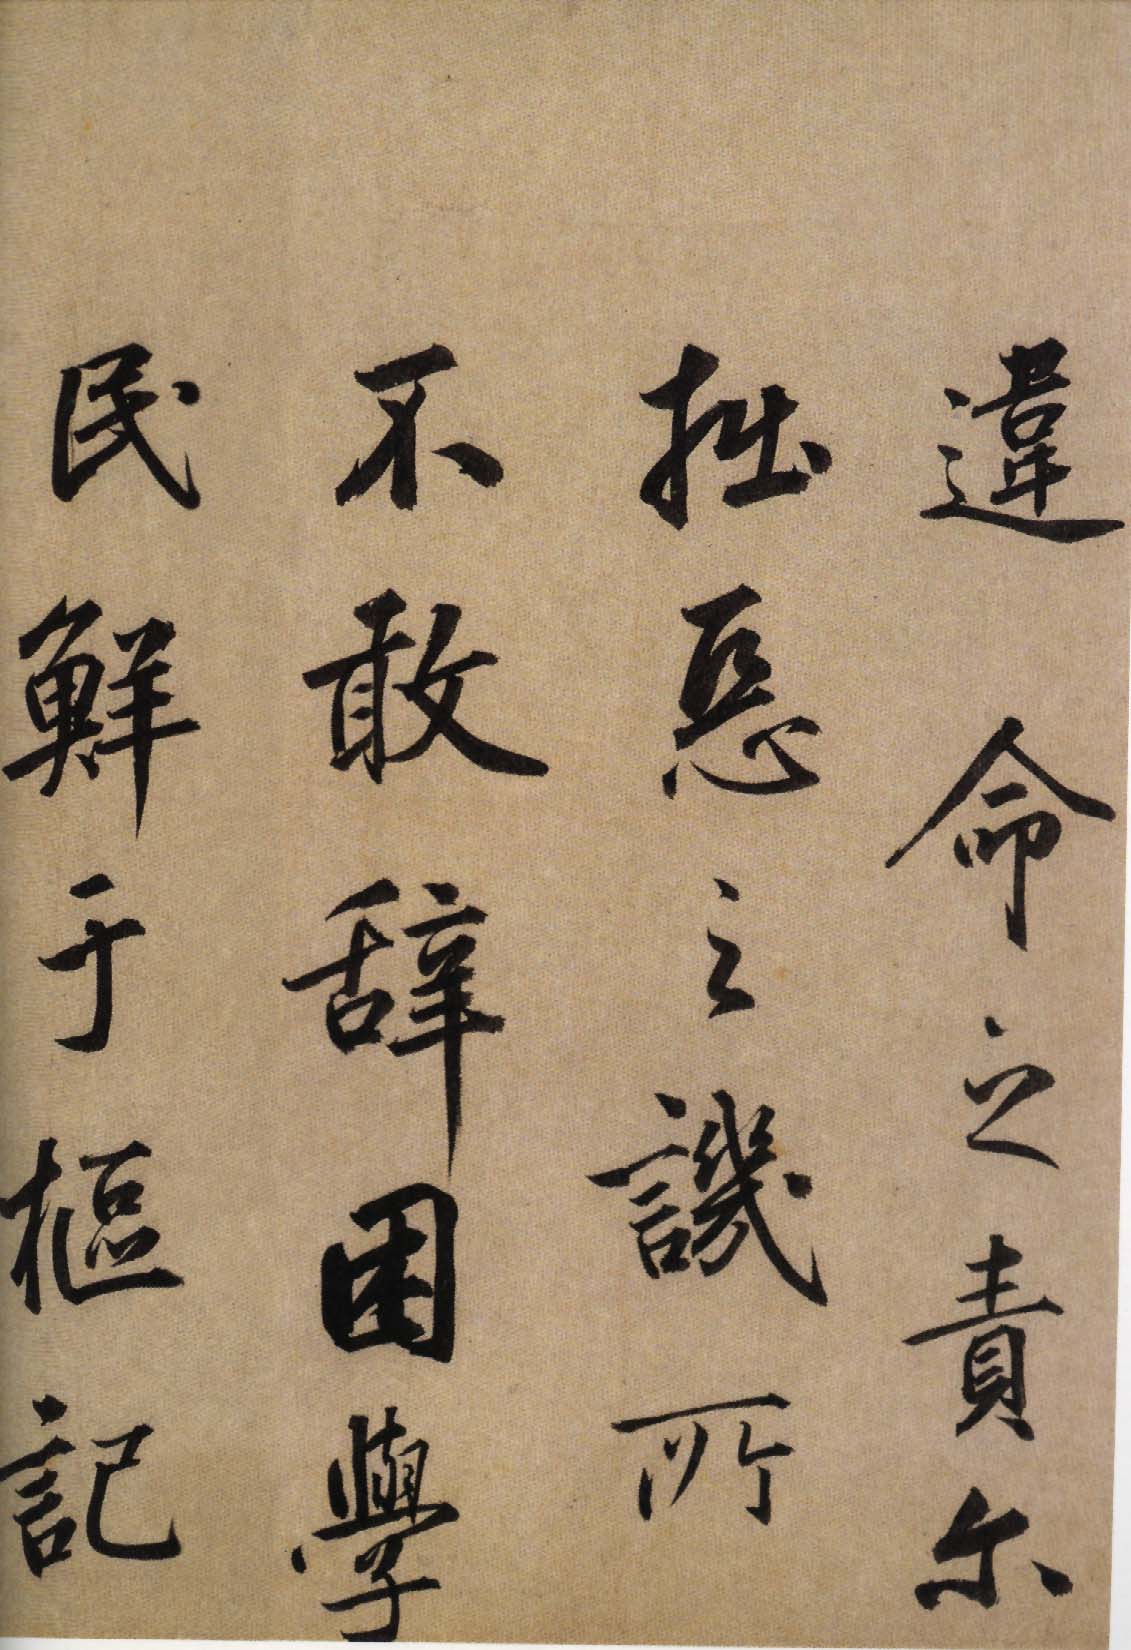 違命之責尔
拙惡之譏所
不敢辞困學
民鮮于樞記